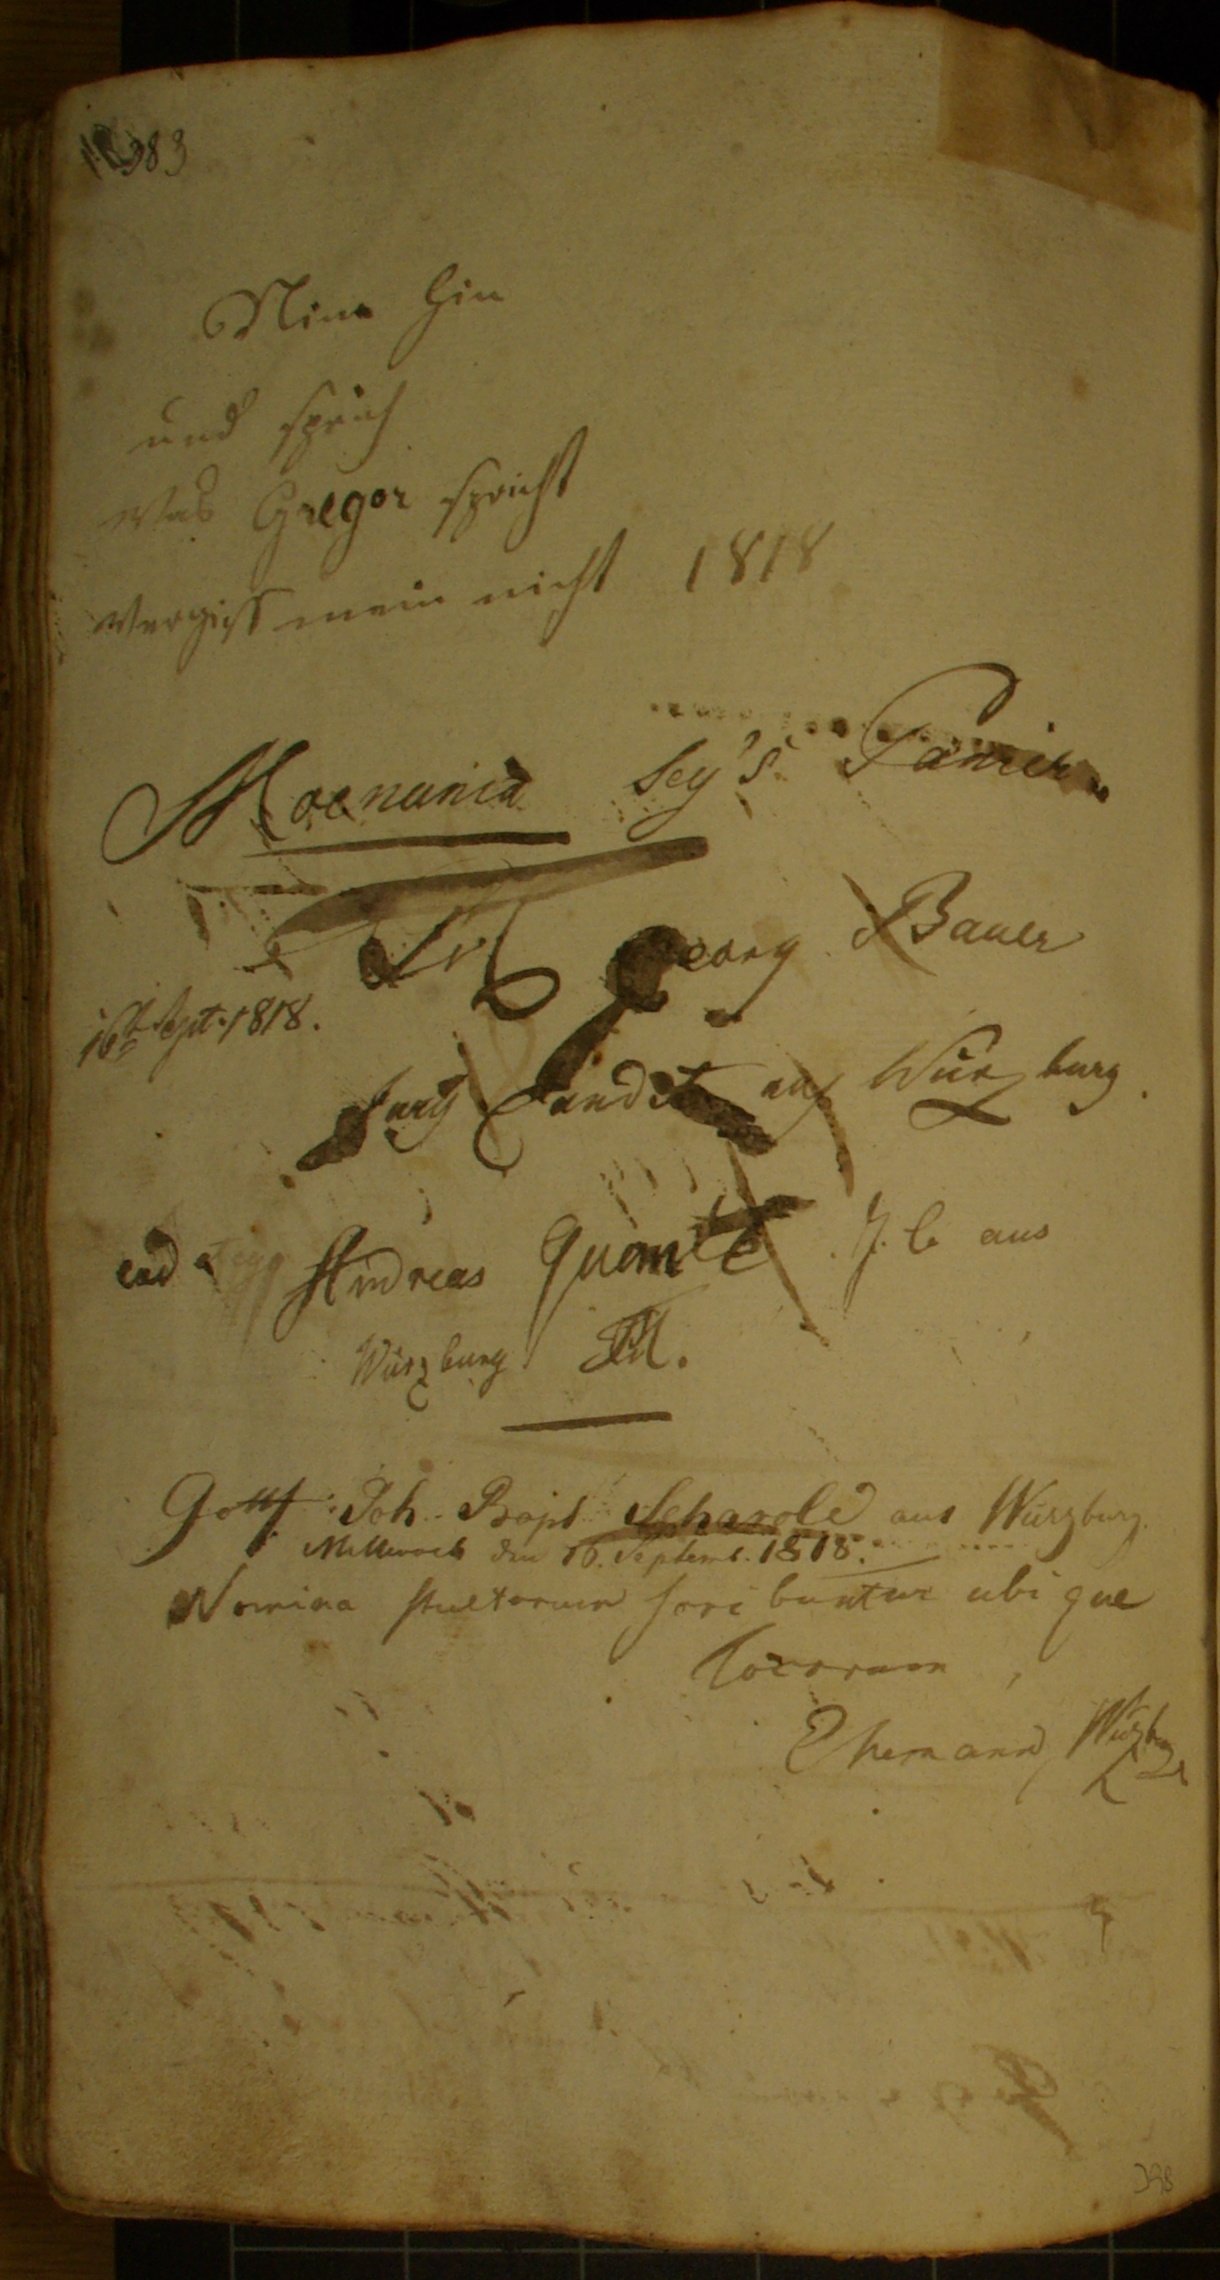 383
Nim hin
und sprich
was Gregor spricht
Vergiss mein nicht 1818
Moenania Sey's Panier
Georg Bauer
16t Sept. 1818.
Jur. Candit aus Würzburg.
eod Andreas Quante J. C aus
Würzburg M.
Joh. Bapt Scharold aus Würzburg.
Mittwoch den 16. Septemb. 1818.
Nomina stultorum scribuntur ubique
locorum
Ehemann Würzburg